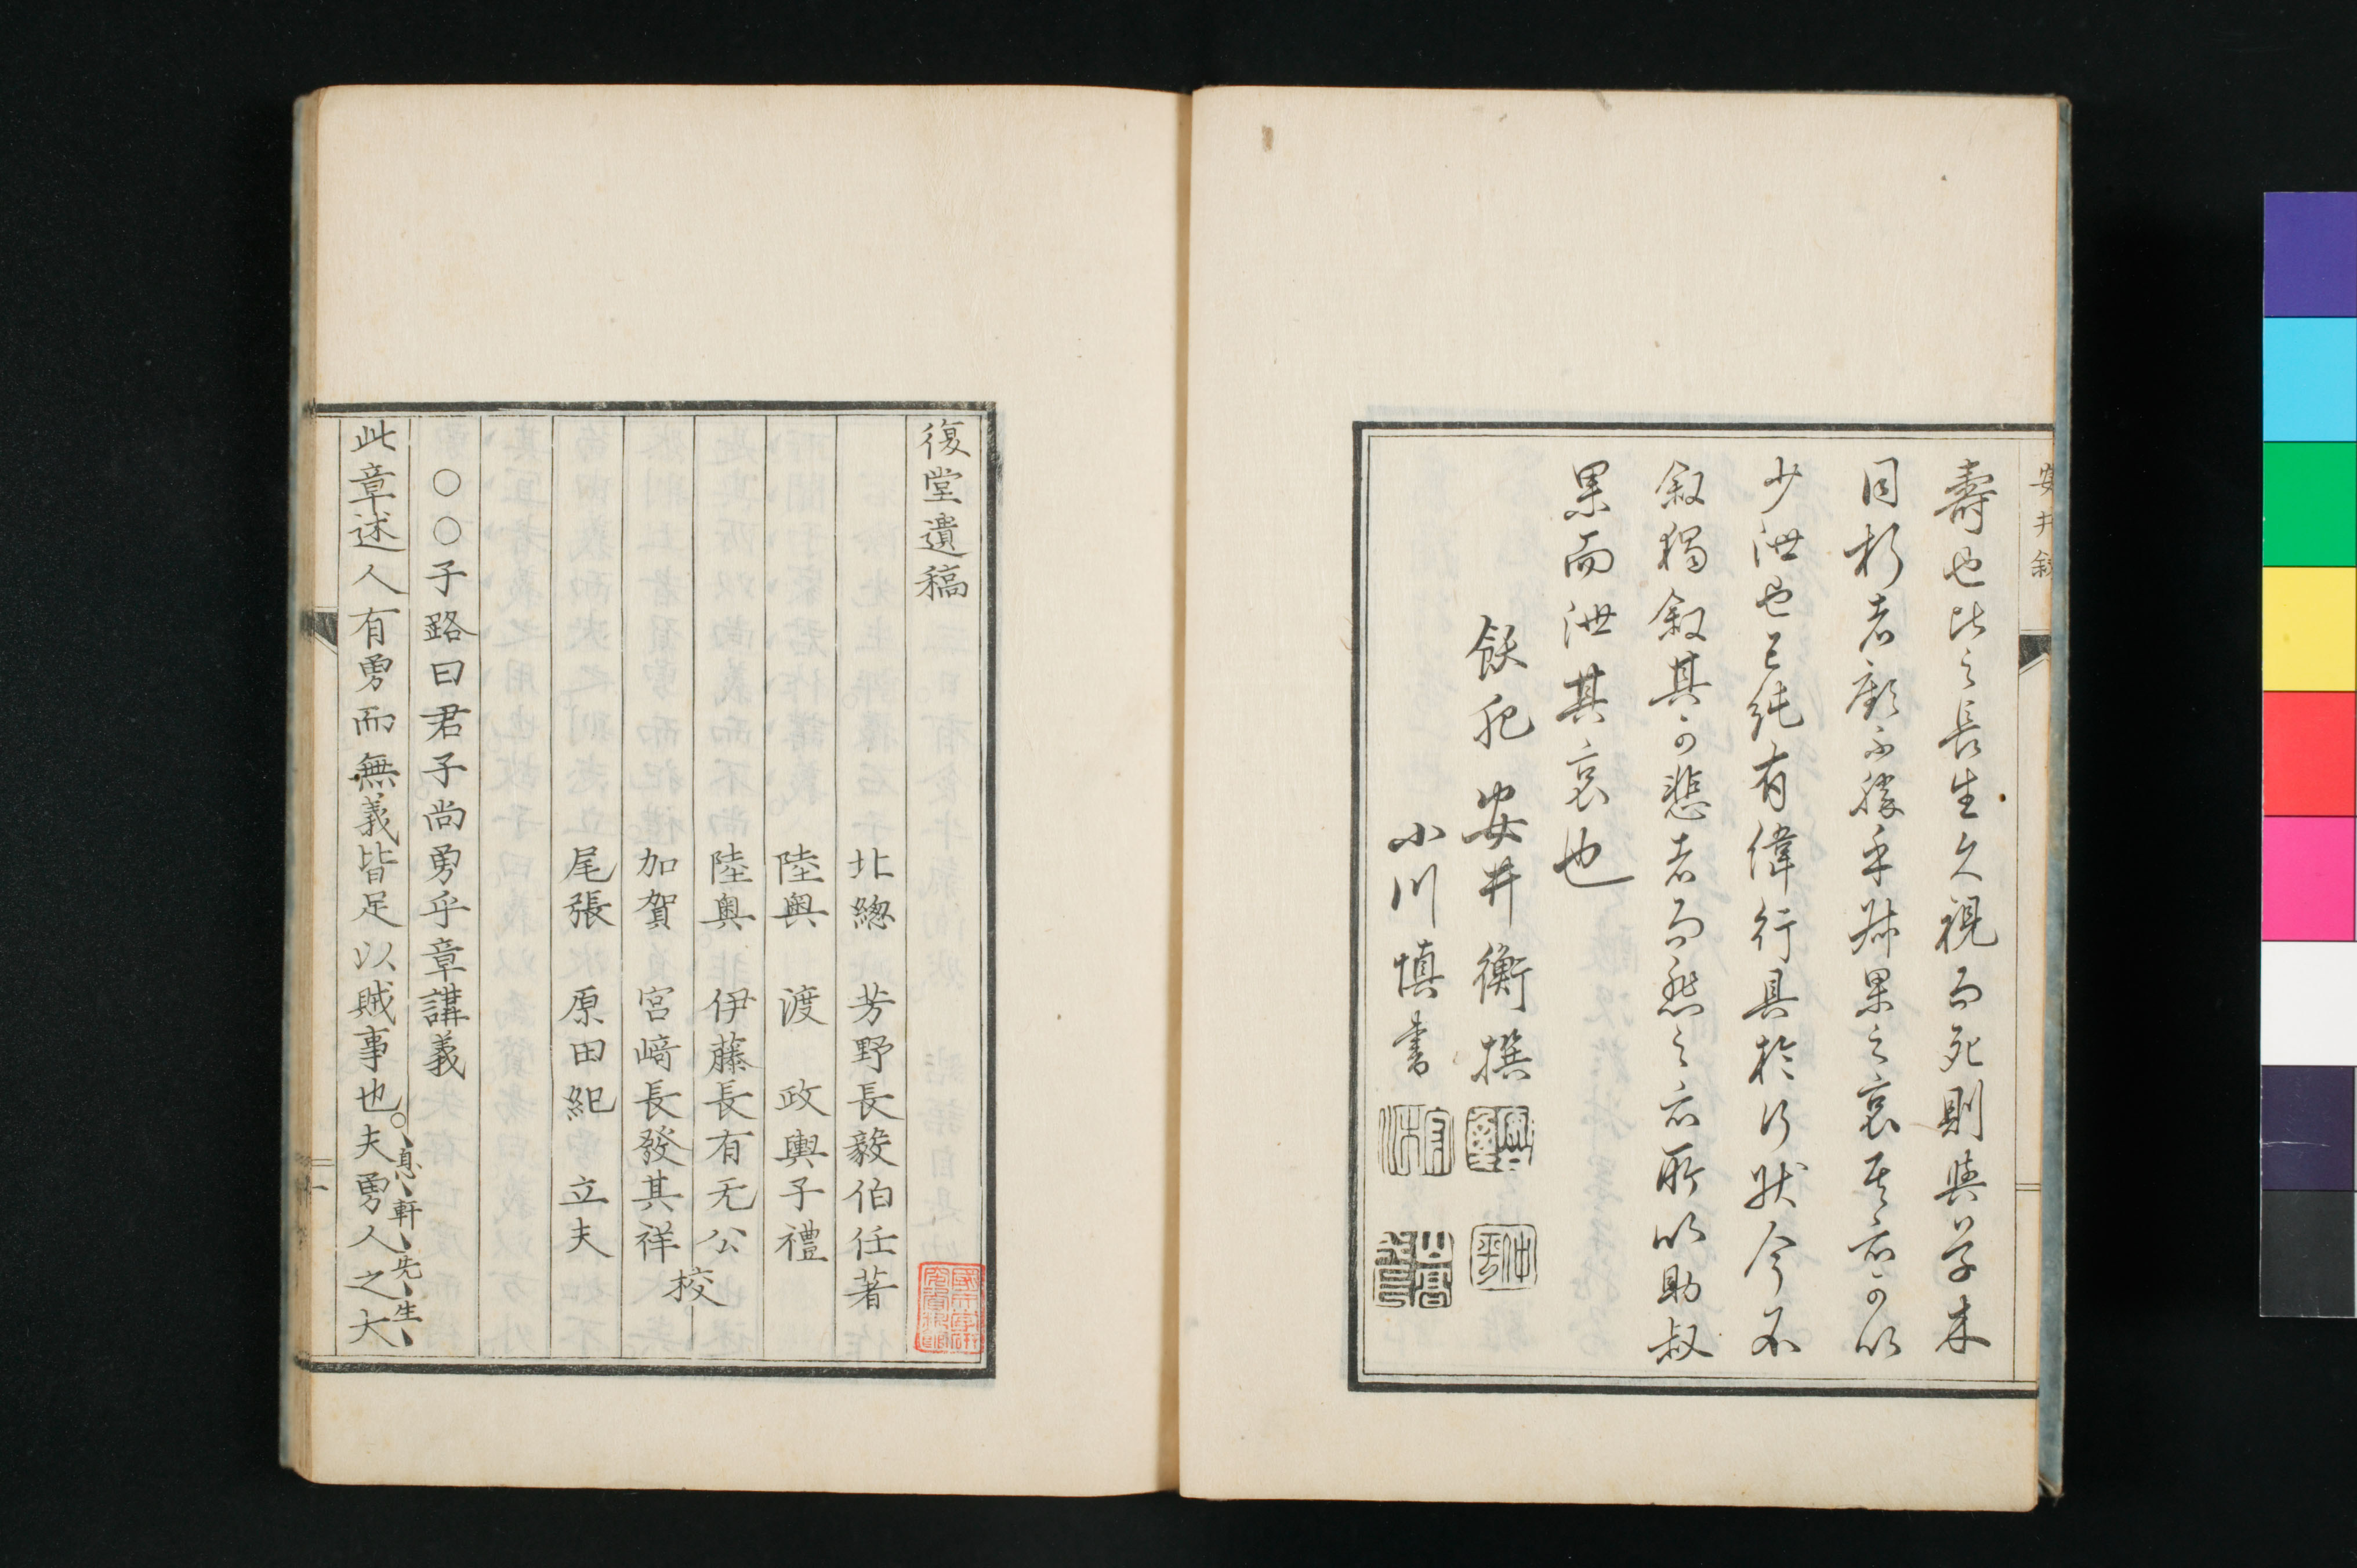 安井敘
壽也比之長生久視而死則與草木
同朽者顧不勝乎叔果之哀其亦可以
少泄也已純有偉行具於行狀今不
敘獨敘其可悲者而愁之亦所以助叔
果而泄其哀也
飫肥 安井衡撰
小川愼書
復堂遺稿
北總 芳野長毅伯任著
陸奧 渡 政輿子禮
陸奧 伊藤長有无公
加賀 宮﨑長發其祥
校
尾張 原田紀 立夫
○○子路曰君子尚勇乎章講義
此章述人有勇而無義皆足以賊事也。夫勇人之大
息軒先生